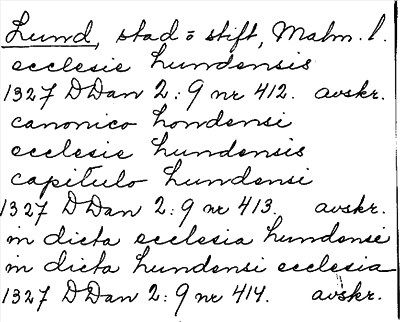 Lund, stad o stift, Malm. l.
ecclesie Lundensis
1327 DDan 2:9 nr 412. avskr.
canonico Londensi
ecclesie Lundensis
capitulo Lundensi
1327 DDan 2:9 nr 413. avskr.
in dicta ecclesia Lundensi
in dicta Lundensi ecclesia
1327 DDan 2:9 nr 414. avskr.